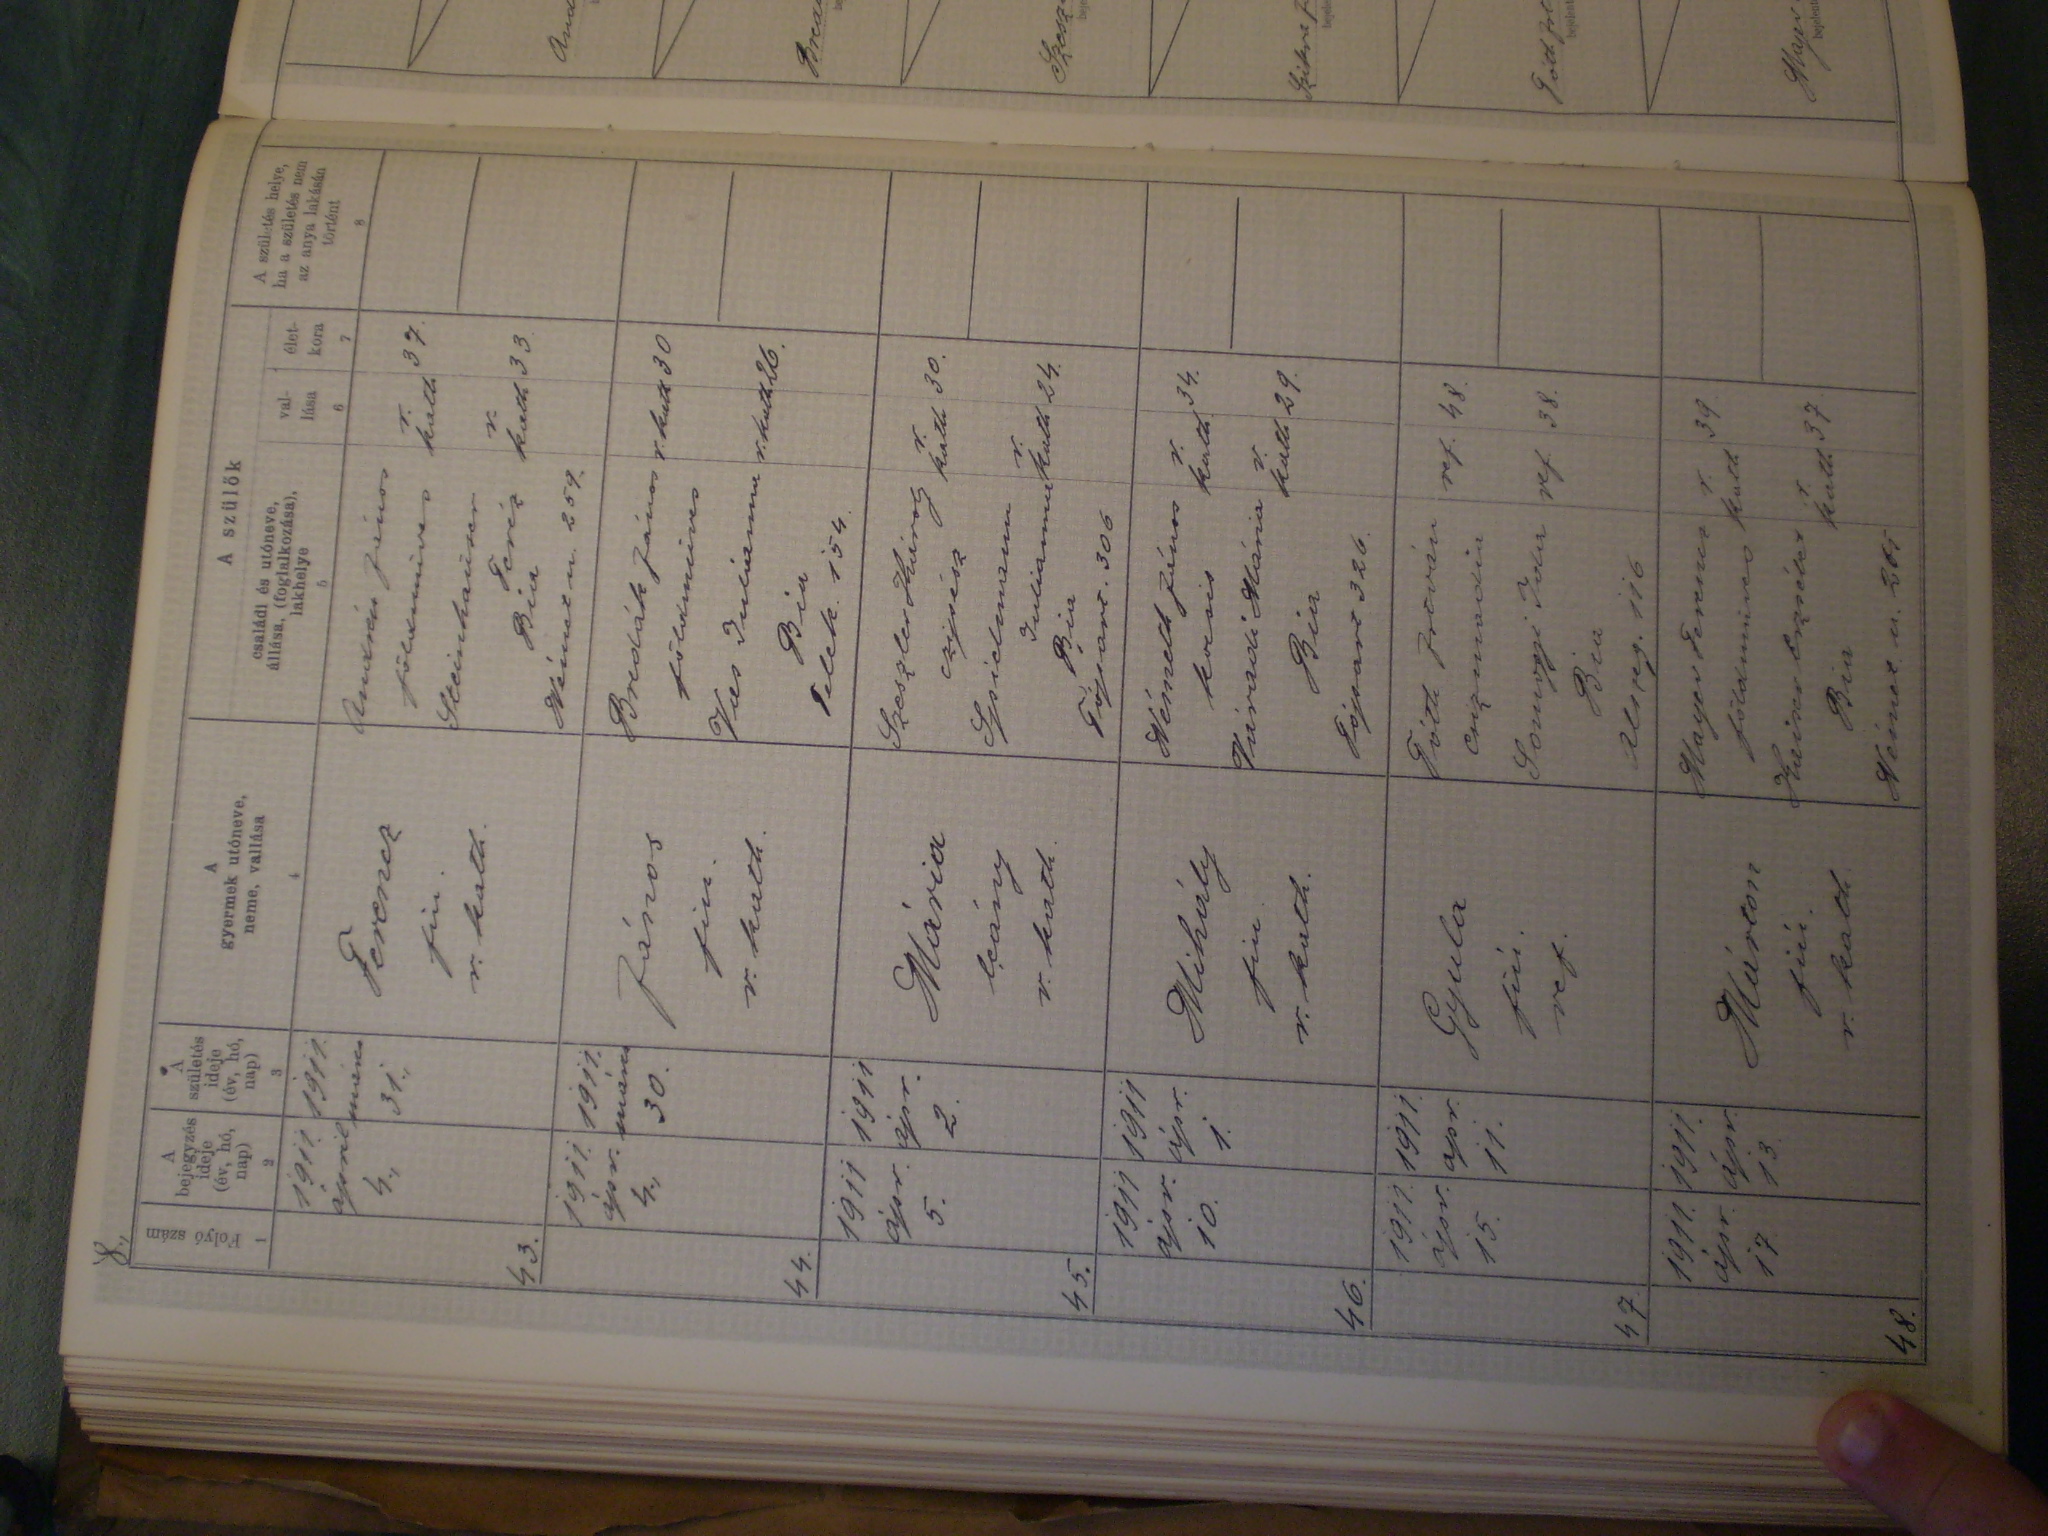 8.,
Folyó szám
1
A
bejegyzés
ideje
(év, hó,
nap)
2
A
születés
ideje
(év, hó,
nap)
3
A
gyermek utóneve,
neme, vallása
4
A szülők
családi és utóneve,
állása, (foglalkozása),
lakhelye
5
val-
lása
6
élet-
kora
7
A születés helye,
ha a születés nem
az anya lakásán
történt
8
43.
1911.
április
4.,
1911.
márcz
31.,
Ferencz
fiu.
r. kath.
János
földmíves
r.
kath 37.
Steinhauser
Teréz
r.
kath 33
Bia
Német u. 259.
44.
1911.
ápr.
4.,
1911.
márcz
30.
János
fiu.
r. kath.
Bredák János r. kath 30
földmíves
Vas Julianna r. kath 26.
Bia
Telek. 154.
45.
1911
ápr.
5.
1911
ápr.
2.
Mária
leány
r. kath.
Szeszler Károly
r.
kath 30.
Spielmann
Julianna
r.
kath 24.
Bia
Tópart. 306
46.
1911
ápr.
10.
1911
ápr.
1.
Mihály
fiu
r. kath.
Németh János
r.
kath. 34.
kocsis
Váradi Mária
r.
kath 29.
Bia
Tópart 326.
47.
1911.
ápr.
15.
1911.
ápr.
11.
Gyula
fiú.
ref.
Tóth István ref. 48.
csizmadia
Somogyi ref. 38.
Bia
116
48.
1911.
ápr.
17
1911.
ápr.
13.
Márton
fiú.
r. kath.
Mayer Ferencz
r.
kath 39.
földmíves
Erzsébet
r.
kath 37
Bia
Német u.